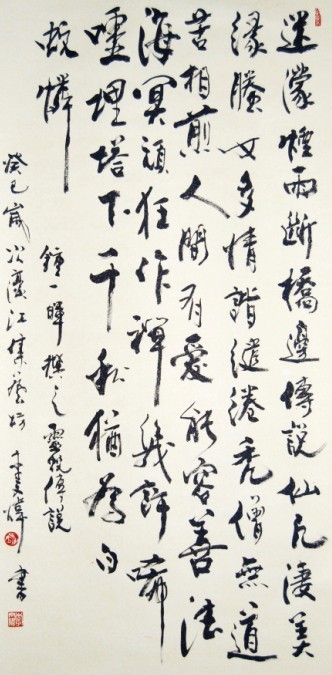 迷濛煙雨斷橋邊傳說仙凡淒美
緣螣女多情諧繾綣禿僧無道
苦相煎人間有愛能容善法
海冥頑狂作禪幾許唏
噓埋塔下千秋猶為白
蛇憐
鍾一暉撰之靈蛇傳說
癸巳歲次滬江集藝坊 書